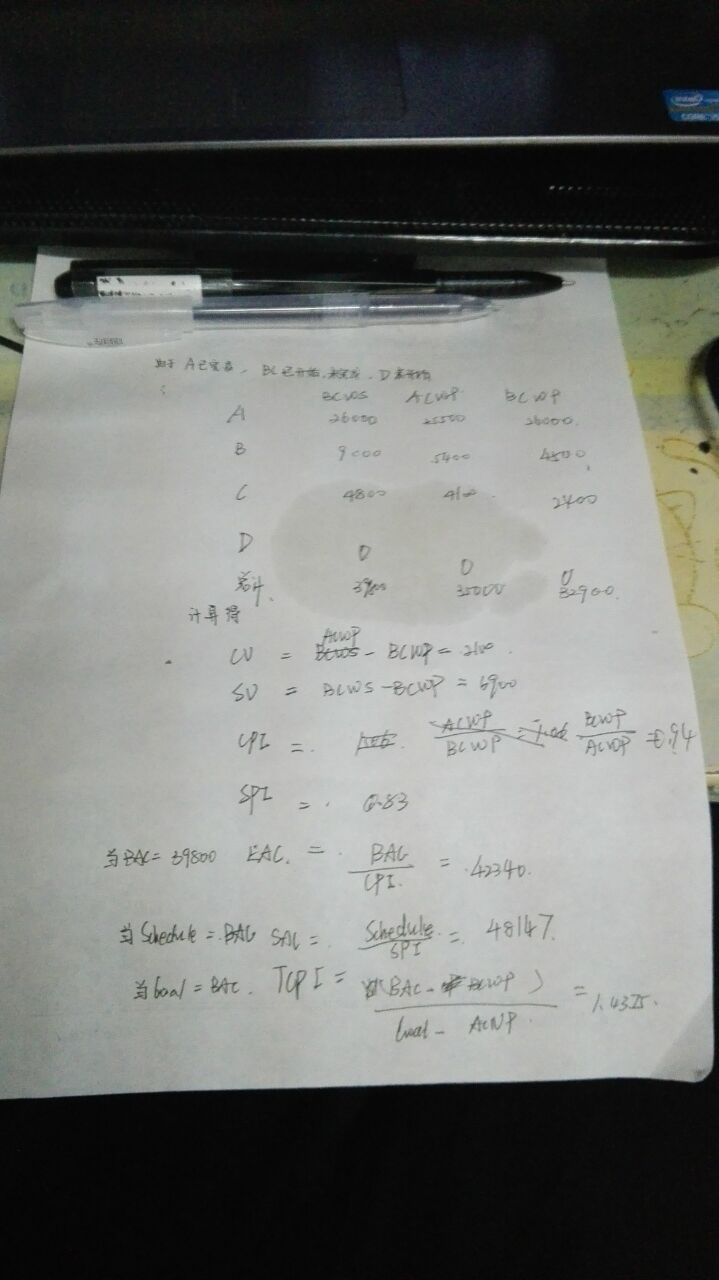 intel
CORE i5
由于 A已完成, BC已开始,未完成, D未开始
BCWS ACWP BCWP
A 26000 25500 26000.
B 9000 5400 4500
C 4800 4100 2400
D 0 0 0
总计. 39800 35000 32900.
计算得
CV = ACWP - BCWP = 2100.
SV = BCWS - BCWP = 6900
CPI = BCWP / ACWP = 0.94
SPI = 0.83
当BAC= 39800 EAC. = BAC / CPI. = 42340.
当Schedule = BAC SAC = Schedule / SPI = 48147.
当Goal = BAC. TCPI = (BAC - BCWP) / Goal - ACWP = 1.4375.